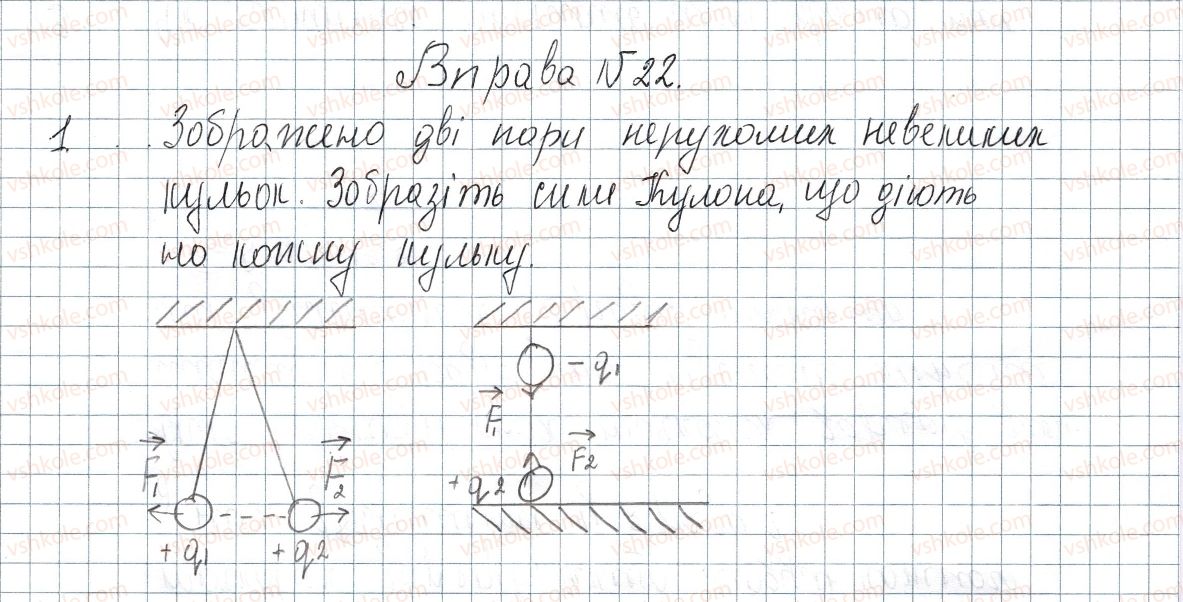 Вправа №22.
1. Зображено дві пари нерухомих невеликих
кульок. Зобразіть сили Кулона, що діють
на кожну кульку.
- q1
F1
F2
F1
F2
+ q2
+ q1
+ q2
vshkole.com